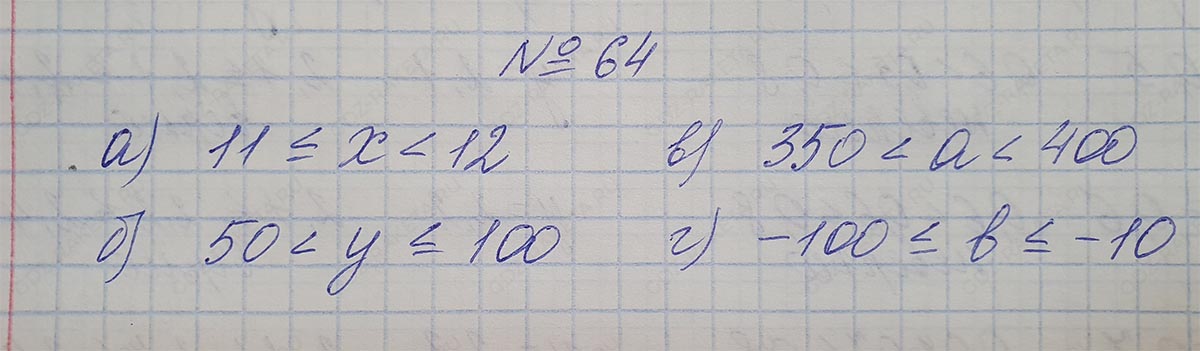 № 64
а) 11 ≤ x < 12 в) 350 < a < 400
б) 50 < y ≤ 100 г) -100 ≤ b ≤ -10